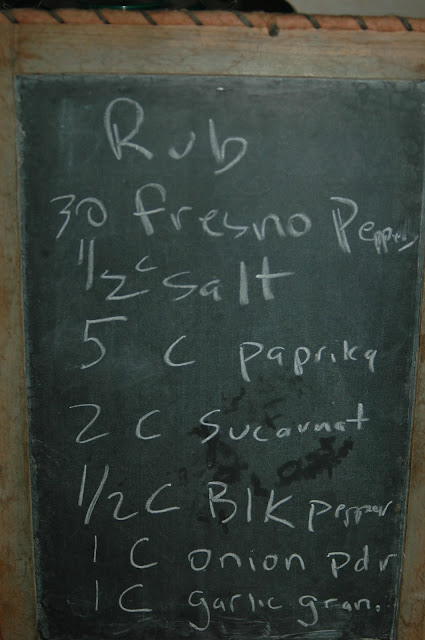 Rub
30 fresno Peppers
1/2 c salt
5 C paprika
2 C Sucarnat
1/2 C BlK pepper
1 C onion pdr
1 C garlic gran.